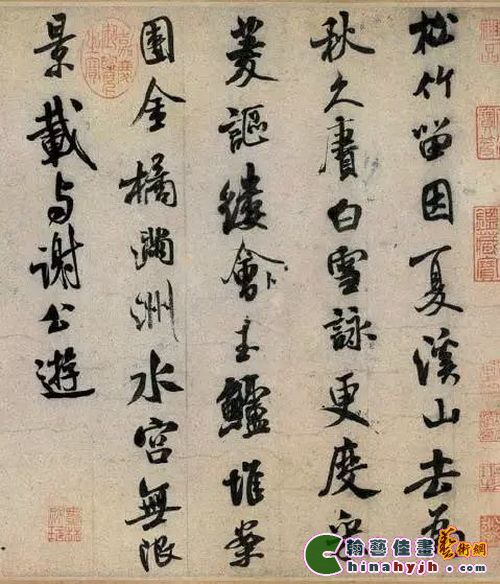 松竹留因夏溪山去為
秋久賡白雪詠更度采
菱謳縷會玉鱸堆案
團金橘滿洲水宮無限
景載与謝公遊
翰藝佳畫藝術網
Chinahyjh.com